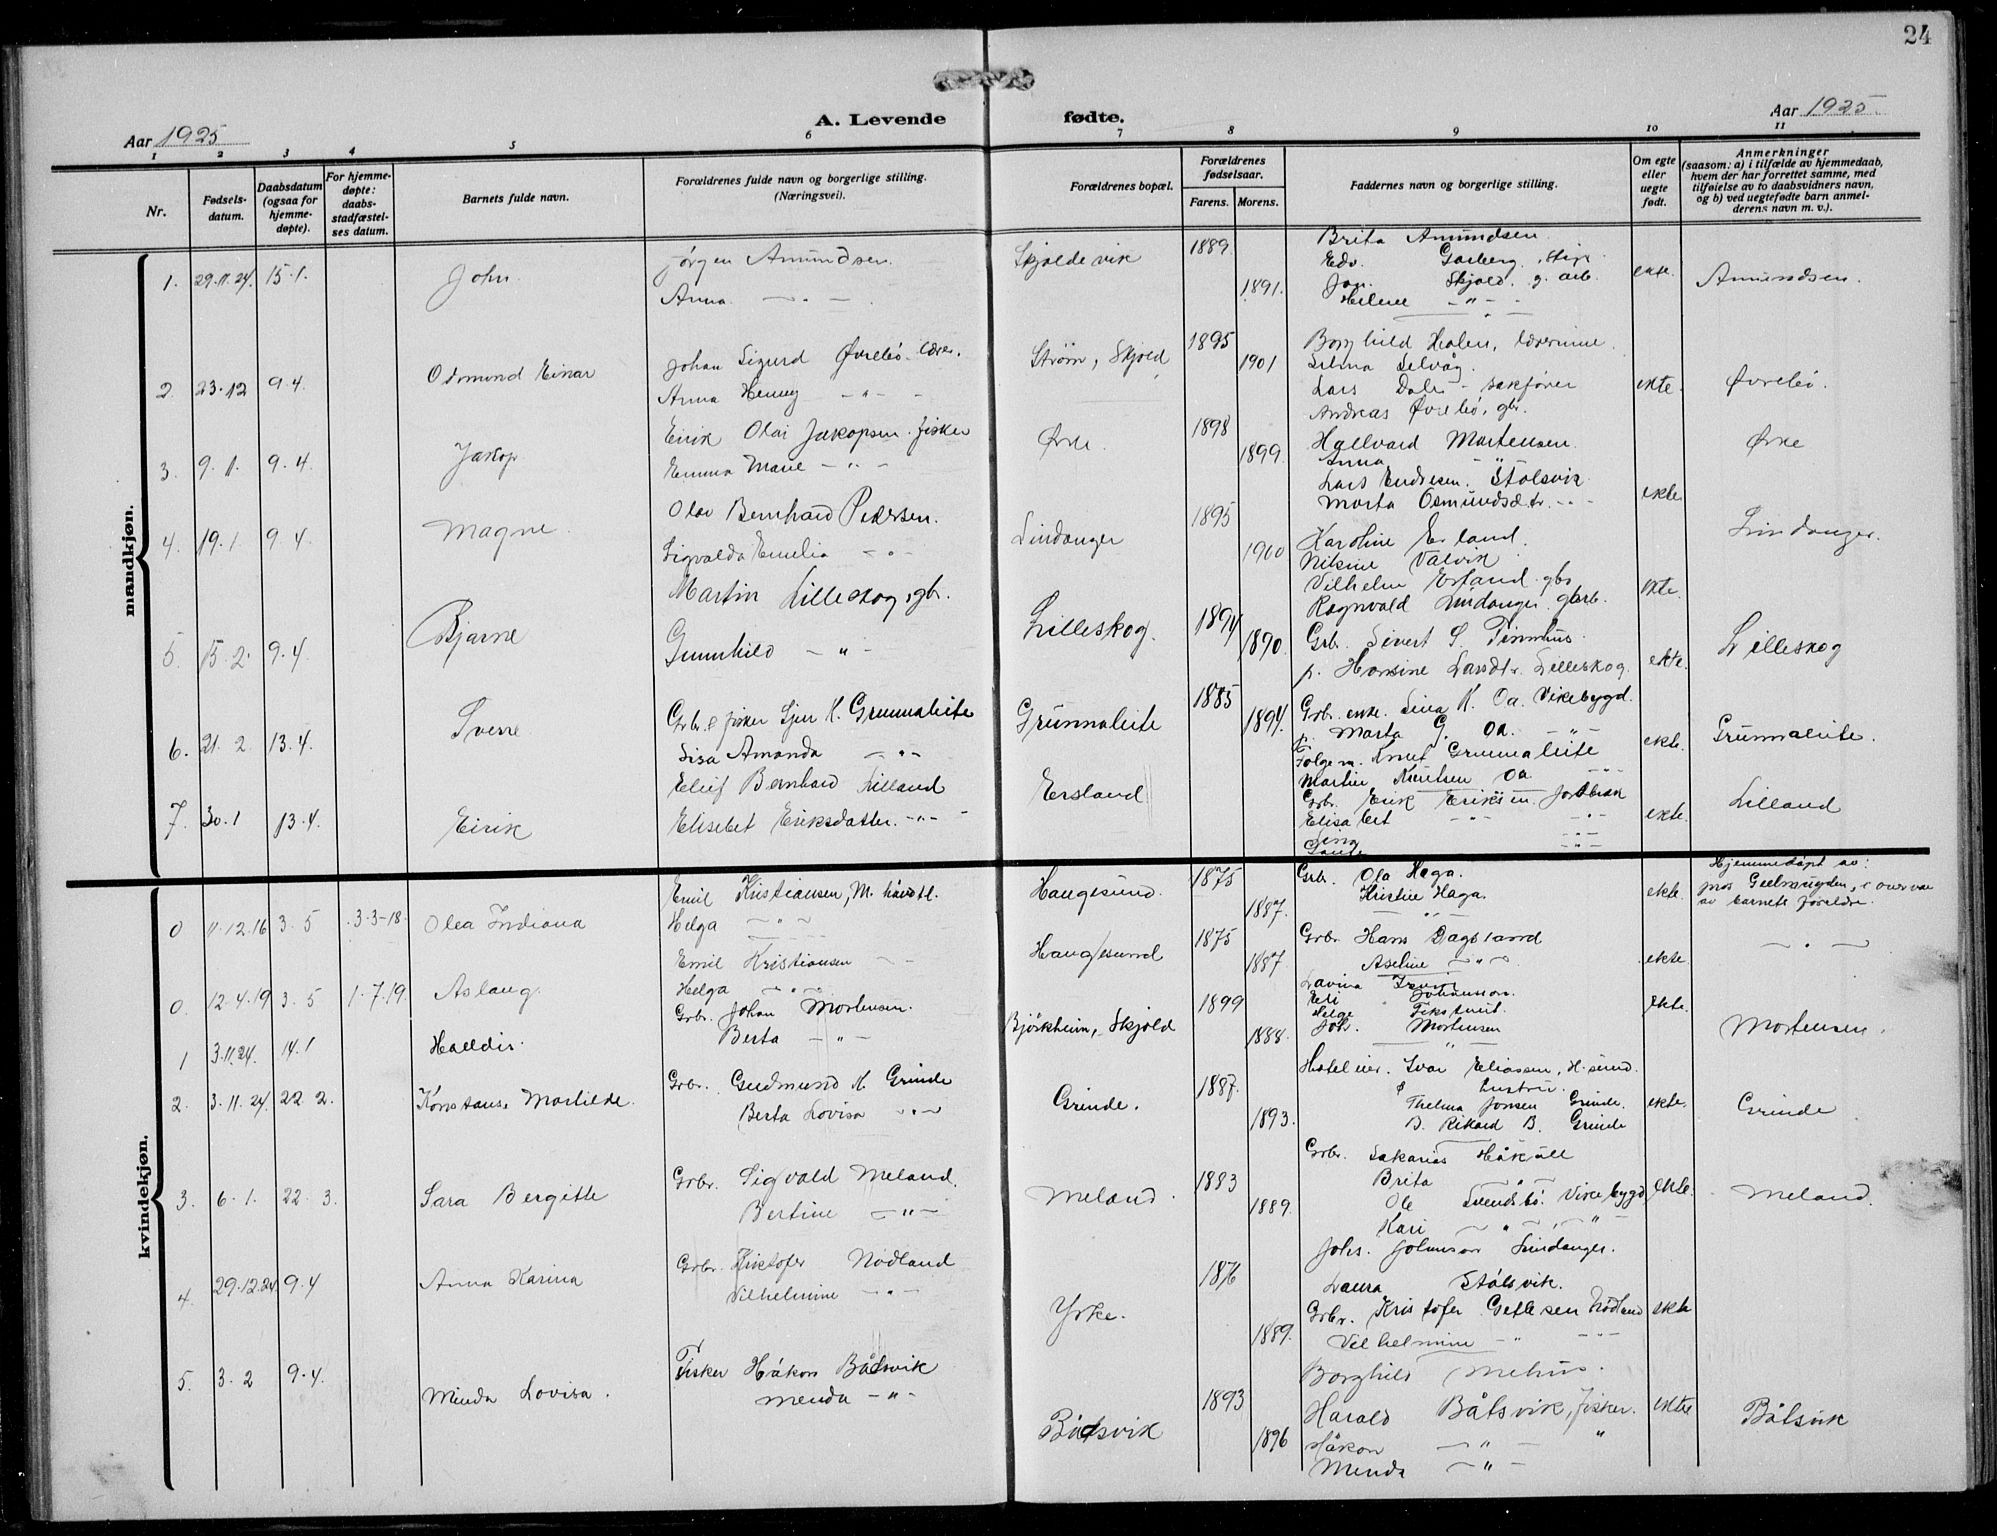 24
Aar 1925
A. Levende fødte.
Aar 1925
1 2 3 4 5 6 7 8 9 10 11
Nr.
Fødsels-
datum.
Daabsdatum
(ogsaa for
hjemme-
døpte).
For hjemme-
døpte:
daabs-
stadfæstel-
ses datum.
Barnets fulde navn.
Forældrenes fulde navn og borgerlige stilling.
(Næringsvei).
Forældrenes bopæl.
Forældrenes
fødselsaar.
Farens. Morens.
Faddernes navn og borgerlige stilling.
Om egte
eller
uegte
født.
Anmerkninger
(saasom: a) i tilfælde av hjemmedaab,
hvem der har forrettet samme, med
tilføielse av to daabsvidners navn,
og b) ved uegtefødte barn anmel-
derens navn m. v.).
mandkjøn.
1. 29.11.24. 15.1. John Jørgen Amundsen Skjoldevik 1889 Brita Amundsen
Anna — " — 1891. Edv. Garberg
Jon Skjold. g. arb. ekte. Amundsen.
Helene — " —
2. 23.12 9.4. Osmund Einar Johan Sigurd Øvrebö lærer. Strøm, Skjold 1895 Borghild Holen, lærerinne
Anna Henny — " — 1901 Selma Selvåg.
Lars Dale - sakfører ekte. Øvrebö.
Andreas Øvrebö, gbr.
3. 9.1. 9.4. Jakop Eirik Olai Jakopsen fisker Ørke. 1898 Hallvard Mortensen. Ørke
Emma Marie — " — 1899. Anna — " —
Lars Endresen. Stolsvik
Marta Osmundsdtr. — " — ekte
4. 19.1. 9.4. Magne Olav Bernhard Pedersen. Lindanger 1895 Karoline Erland. Lindanger.
Sigvalda Emelia — " — 1900 Nikine Valvik
Vilhelm Erland gbr. ekte.
Ragnvald Lindanger, gbrb.
5. 15.2. 9.4. Bjarne Martin Lilleskog, gbr. Lilleskog. 1894 Gbr. Sivert S. Timmhus. Lilleskog
Gunnhild — " — 1890 p. Hansine Larsdtr. Lilleskog. ekte.
6. 21.2. 13.4. Sverre Gbr. & fisker Sjur K. Grunnaleite Grunnaleite 1885 Gbr. enke. Sina K. Oa. Vikebygd.
Lisa Amanda — " — 1894. p. Marta G. Oa. — " — ekte. Grunnaleite.
Følgem. Knut Grunnaleite
Martin Knutsen Oa — " —
7. 30.1 13.4. Eirik Eluf Bernhard Lilland Ersland Gbr. Erik Eriksen. Jordbræk Lilland
Elisebet Eriksdatter. — " — Elisabet — " — ekte.
Lina — " —
kvindekjøn.
0 11.12.16 3.5 3-3-18. Olea Indiana Emil Kristiansen, M. håndtl. Haugesund. 1875 Gbr. Ola Haga. ekte. Hjemmedøpt av:
Helga — " — 1887. Kristine Haga. av barnets foreldre.
0. 12.4.19 3.5 1.7.19. Aslaug. Emil Kristiansen — Haugesund 1875 Gbr. Hans Dagsland ekte. — " —
Helga — " — 1887 Aseline — " —
1 3.11.24. 14.1 Halldis. Gbr. Johan Mortensen. Bjørkheim, Skjold 1899 Eli Johannson. ekte. Mortensen.
Berta — " — 1888. Joh. Mortensen
2. 3.11.24. 22.2. Konstanse Martilde. Gbr. Gudmund K. Grinde Grinde. 1887. Hotelier. Ivar Eliassen, H.sund.
Berta Lovisa — " — 1893. & hustru.
Thelma Jonsen Grinde. ekte. Grinde
B. Rikard B. Grinde
3. 6.1. 22.3. Sara Bergitte Gbr. Sigvald Meland. Meland. 1883 Gbr. Sakarias Håkull
Bertine — " — 1889. Brita — " —
Ole Svendsbö. Vikebygd ekte. Meland.
Kari — " —
4. 29.12.24. 9.4 Anna Karina Gbr. Kristofer Nodland Yrke. 1876 Johs. Johnson Lindanger.
Vilhelmine — " — 1889. Laura Stölsvik.
Gbr. Kristofer Getlesen Nodland ekte
Vilhelmine — " —
5. 3.2 9.4. Minda Lovisa. Fisker Håkon Båtsvik Båtsvik 1893 Borghild Mehus.
Menda — " — 1896 Harald Båtsvik, fisker. ekte Båtsvik
Håkon — " — "
Menda — " —